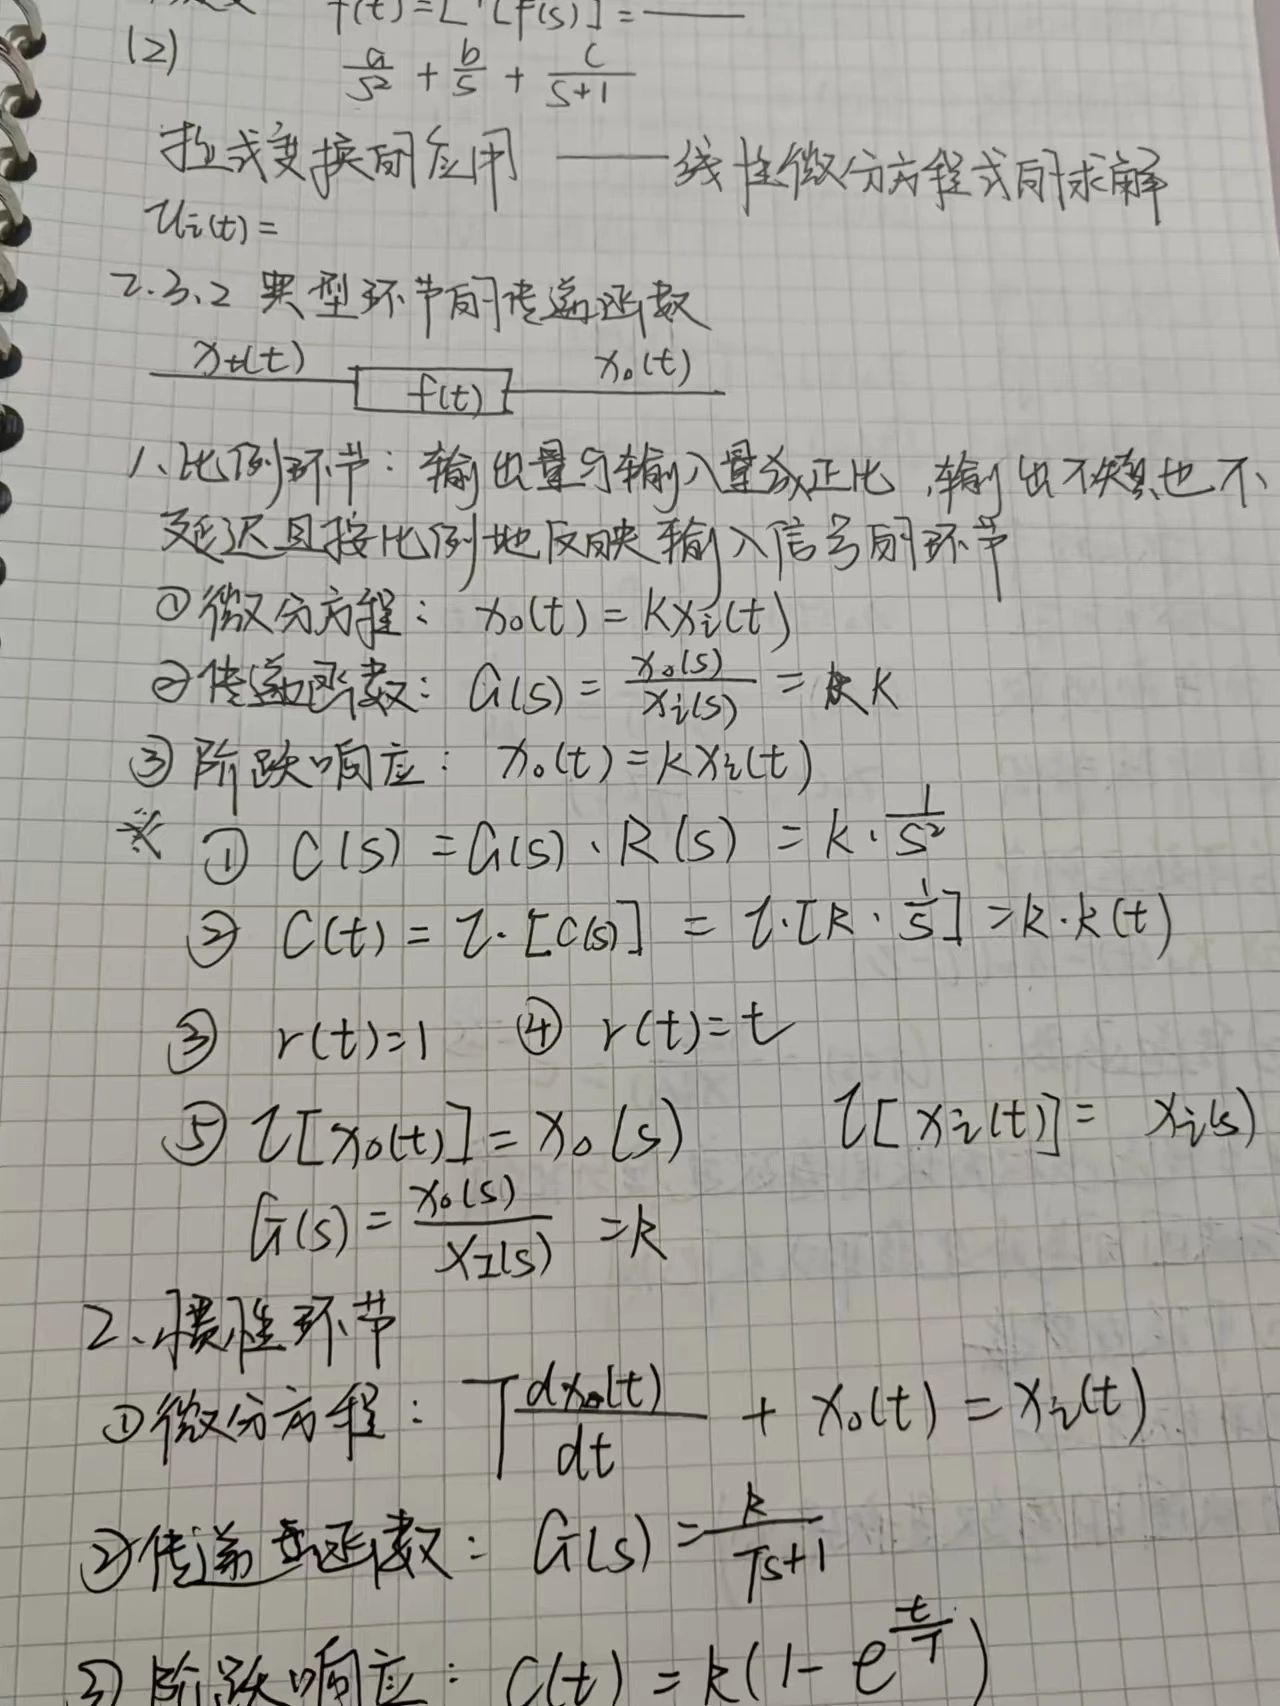 f(t)=L⁻¹[F(s)]=——
(2) a/s² + b/s + c/(s+1)
拉式变换的应用 —— 线性微分方程式的求解
Ui(t)=
2.3.2 典型环节的传递函数
xt(t) f(t) x₀(t)
1、比例环节：输出量与输入量成正比，输出不失真也不
延迟且按比例地反映输入信号的环节
①微分方程：x₀(t)=Kxi(t)
②传递函数：G(s)=x₀(s)/xi(s)=K
③阶跃响应：x₀(t)=kxi(t)
※ ① C(s)=G(s)·R(s)=k·1/s²
② C(t)=τ·[C(s)]=τ·[R·1/s]=k·k(t)
③ r(t)=1 ④ r(t)=t
⑤ τ[x₀(t)]=x₀(s) τ[xi(t)]=xi(s)
G(s)=x₀(s)/xI(s)=k
2、惯性环节
①微分方程：T dx₀(t)/dt + x₀(t)=xi(t)
②传递函数：G(s)=k/(Ts+1)
③阶跃响应：C(t)=k(1-e^(t/T))